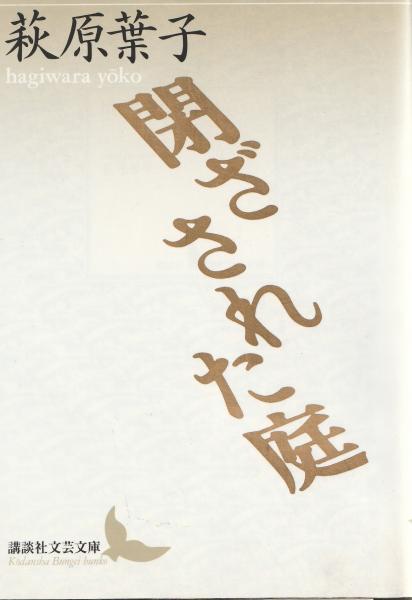 萩原葉子
hagiwara yōko
閉ざされた庭
講談社文芸文庫
Kōdansha Bungei bunko